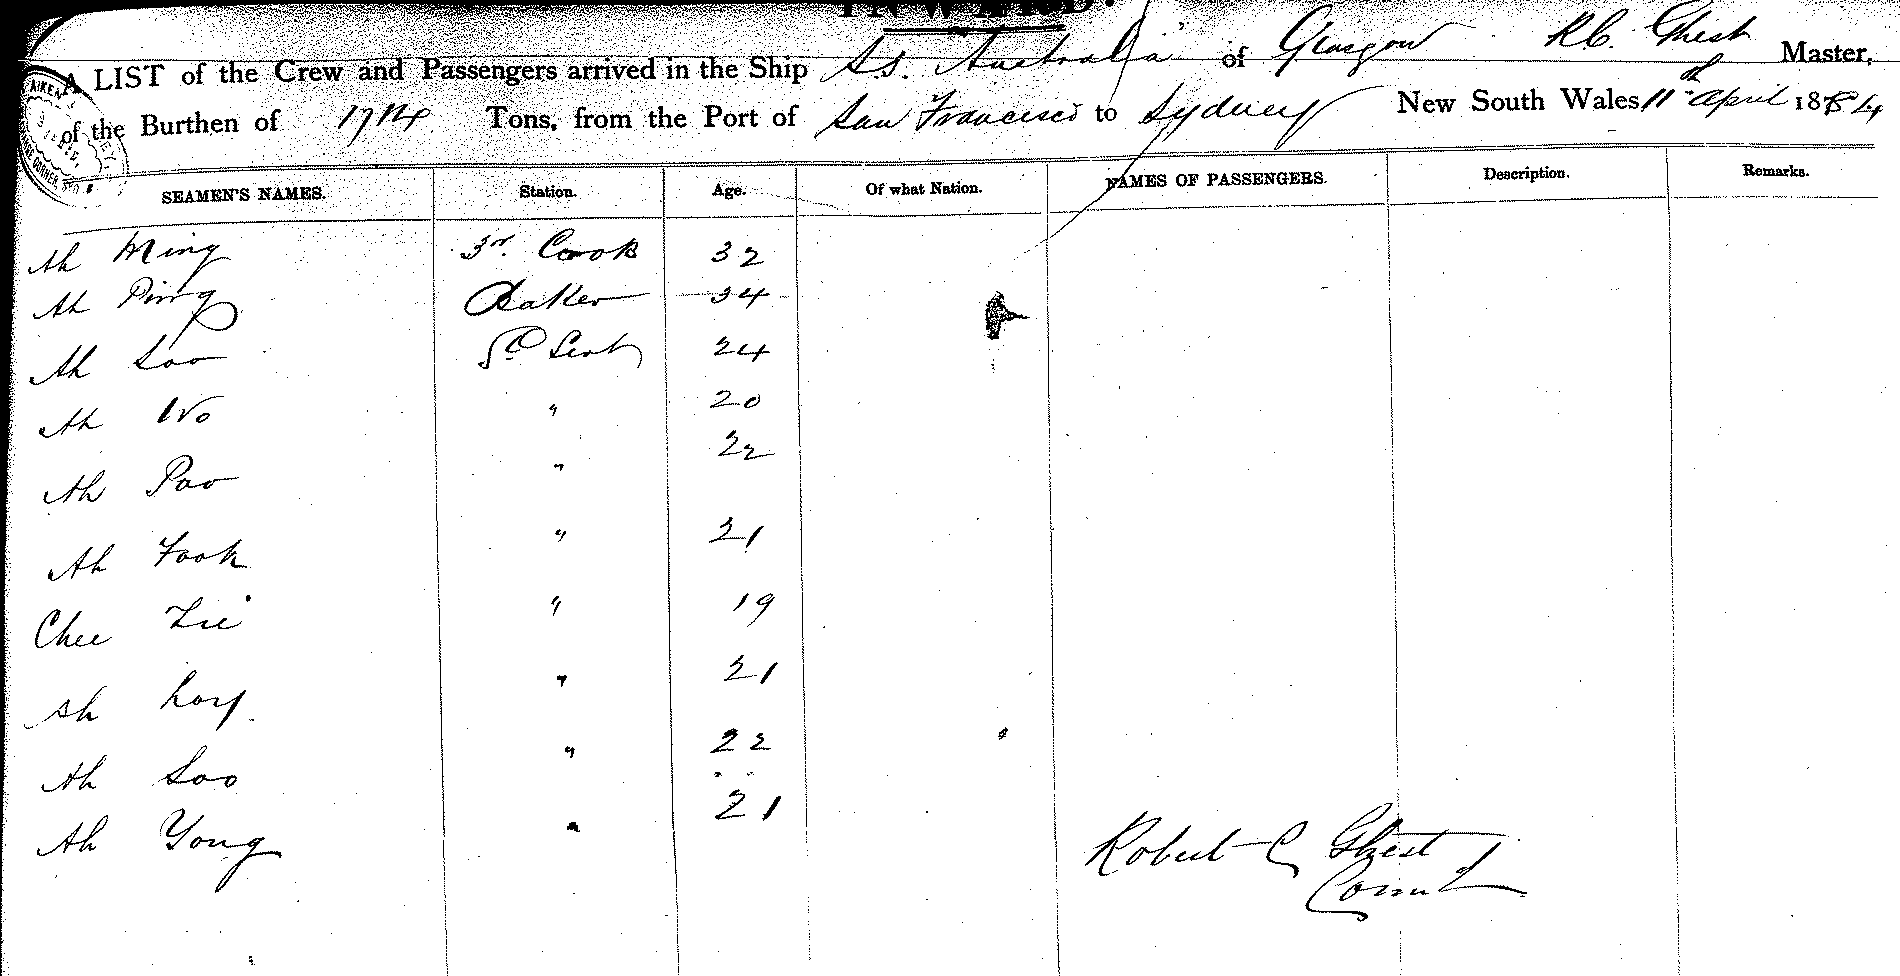 INWARD.
A LIST of the Crew and Passengers arrived in the Ship Ss. "Australia" of Glasgow R.C. Ghest Master,
of the Burthen of 1714 Tons, from the Port of San Francisco to Sydney New South Wales 11th April 1884
SEAMEN'S NAMES. Station. Age. Of what Nation. NAMES OF PASSENGERS. Description. Remarks.
Ah Ming 3r. Cook 32
Ah Ping Baker 34
Ah Soo 24
Ah Wo " 20
Ah Poo " 22
Ah Fook " 21
Chee Lie " 19
Ah " 21
Ah Soo " 22
Ah Yong " 21
Robert C Ghest
Comd